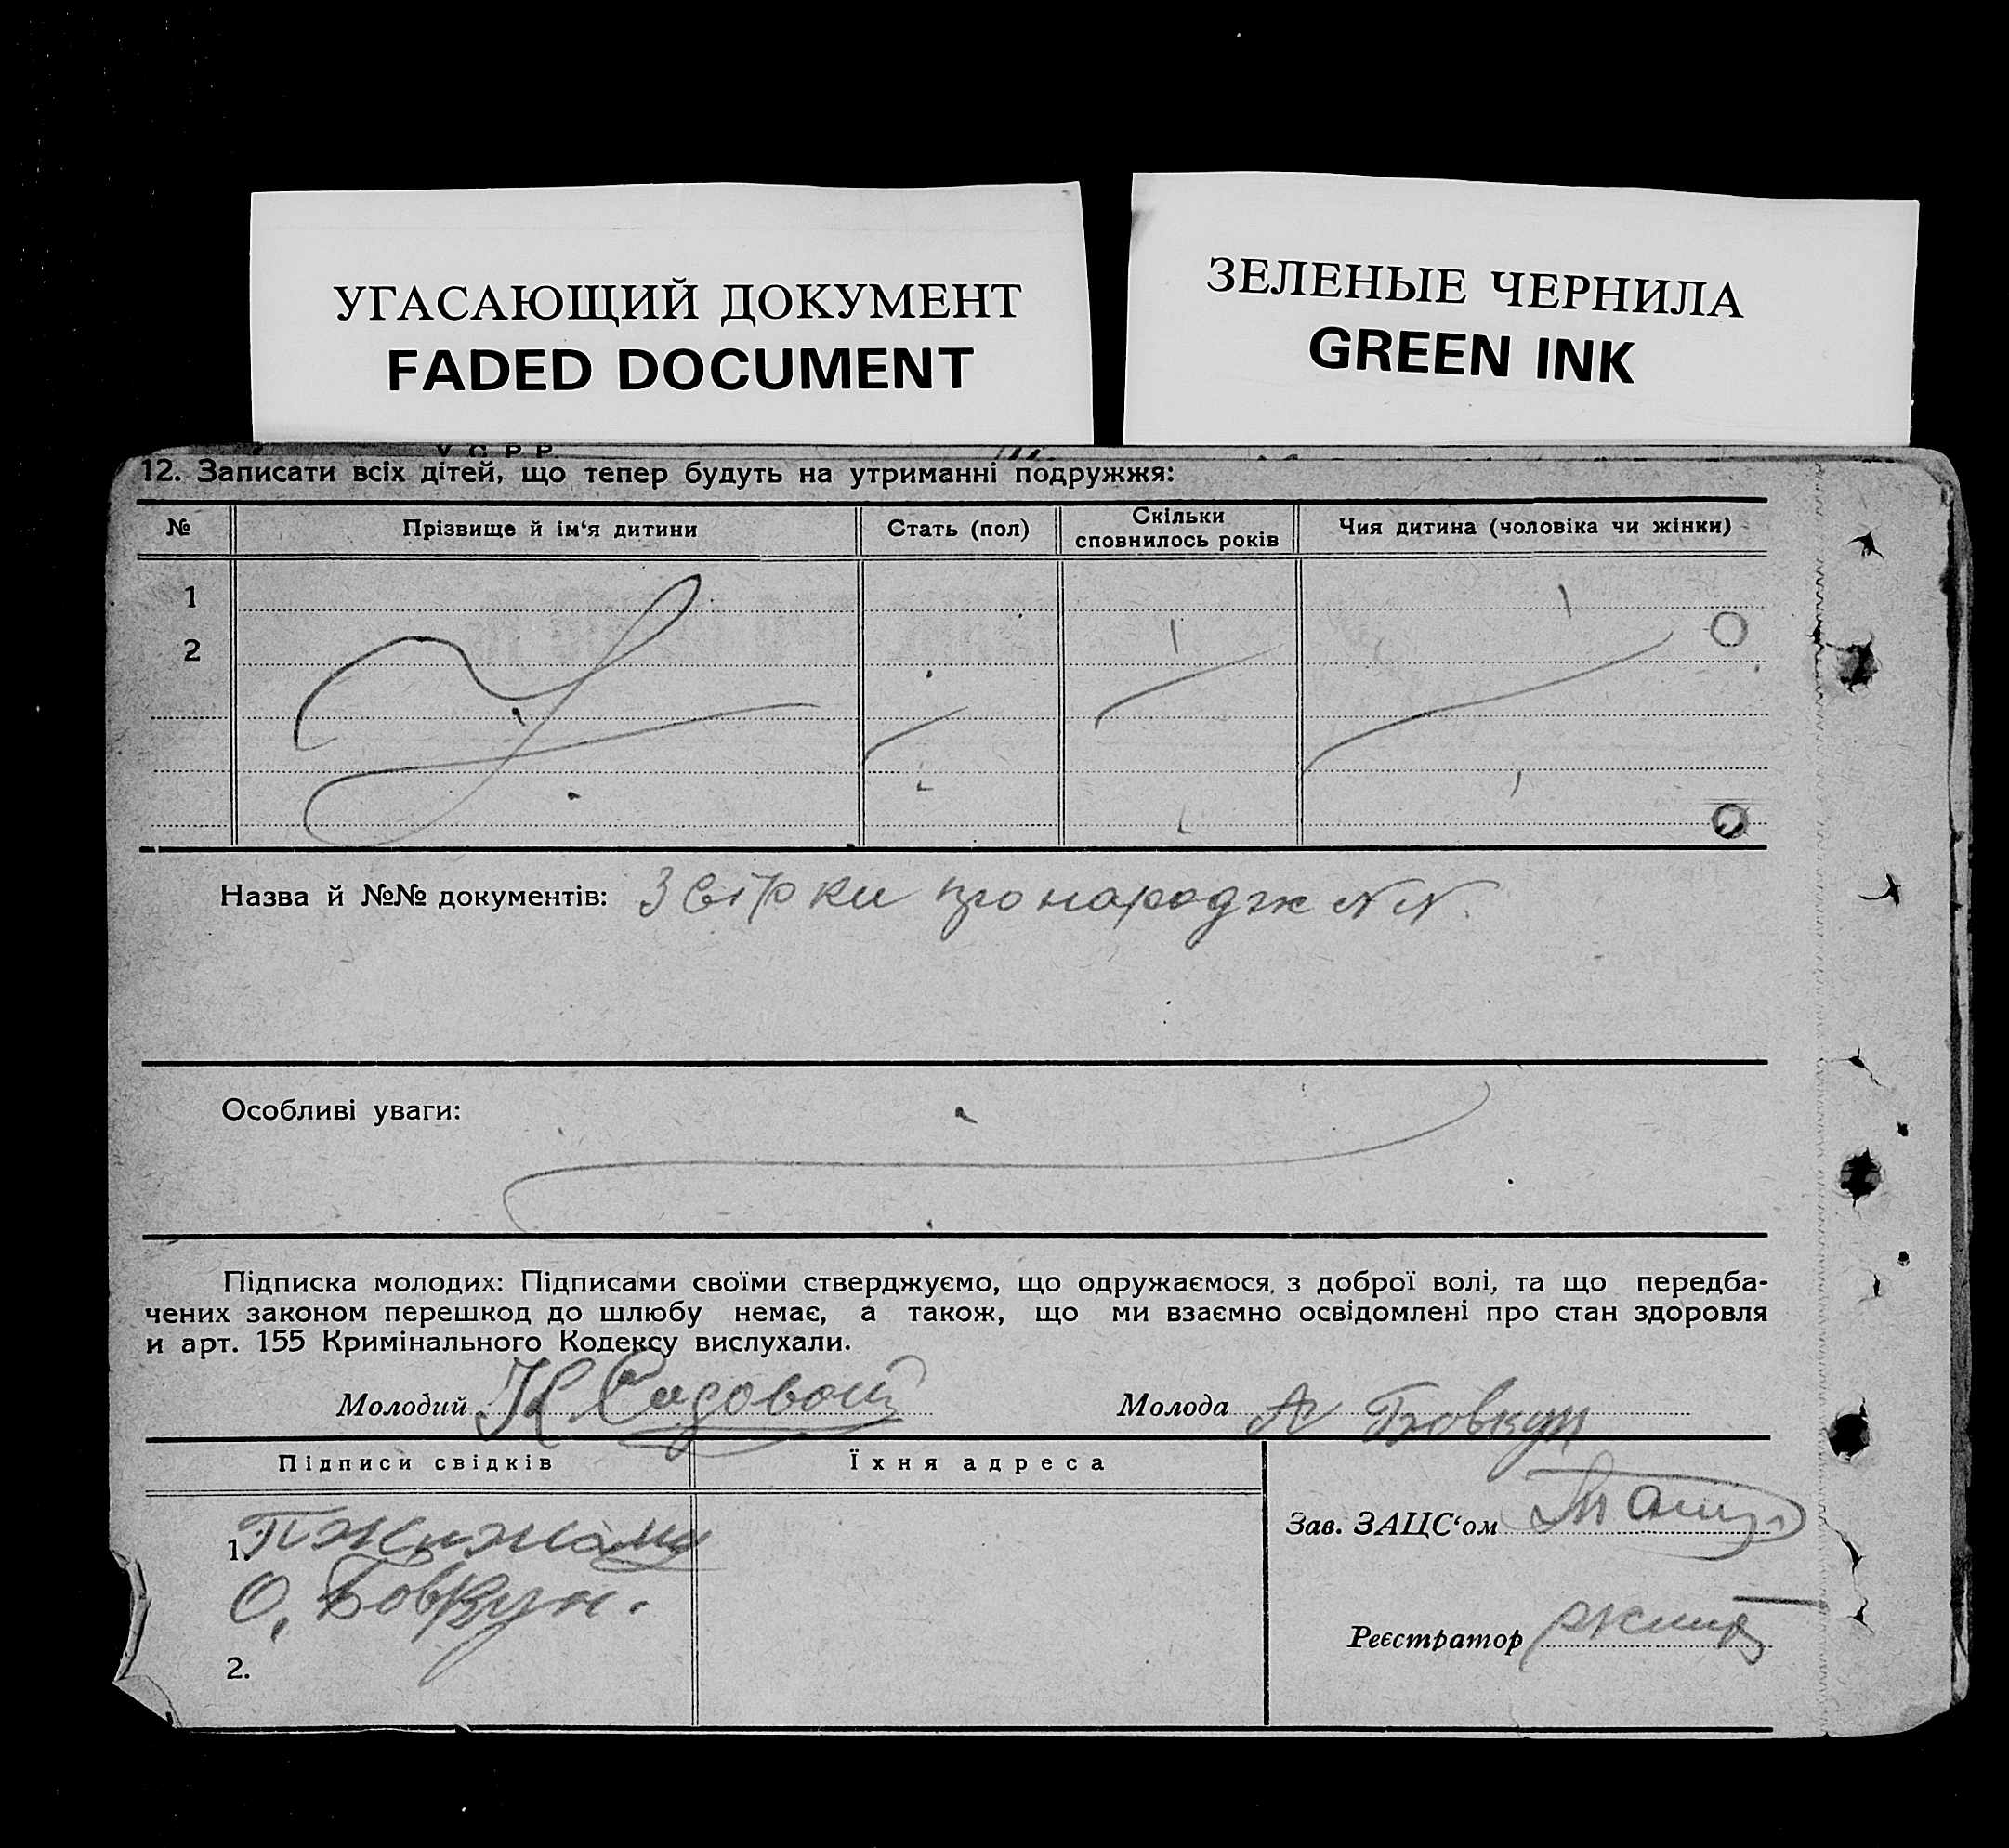 УГАСАЮЩИЙ ДОКУМЕНТ
FADED DOCUMENT
ЗЕЛЕНЫЕ ЧЕРНИЛА
GREEN INK
У С Р Р
12. Записати всіх дітей, що тепер будуть на утриманні подружжя:
№ Прізвище й ім‘я дитини Стать (пол) Скільки сповнилось років Чия дитина (чоловіка чи жінки)
1
2
Назва й №№ документів: про народж N N.
Особливі уваги:
Підписка молодих: Підписами своїми стверджуємо, що одружаємося з доброї волі, та що передба-
чених законом перешкод до шлюбу немає, а також, що ми взаємно освідомлені про стан здоровля
и арт. 155 Кримінального Кодексу вислухали.
Молодий Молода А Бовкун
Підписи свідків Їхня адреса
Зав. ЗАЦС‘ом
1.
О, Бовкун.
Реєстратор
2.